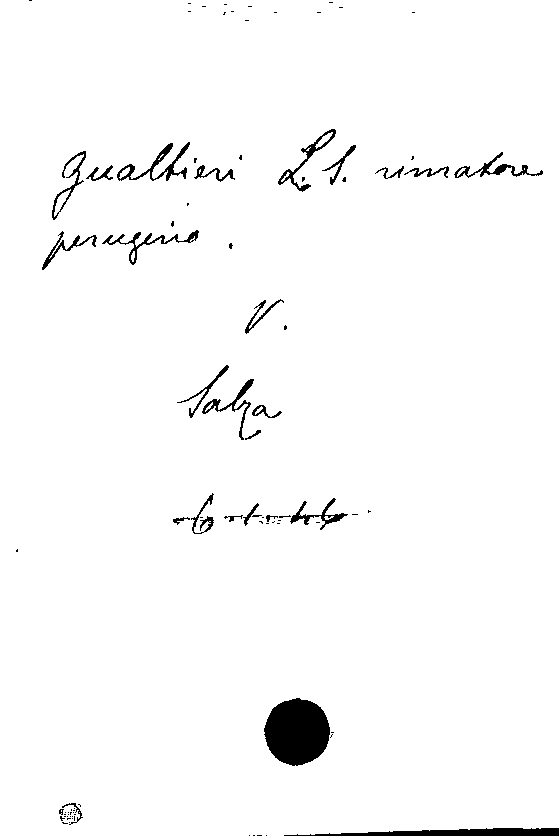 Gualtieri L. S. rimatore
perugino.
V.
Salza
6.1.46